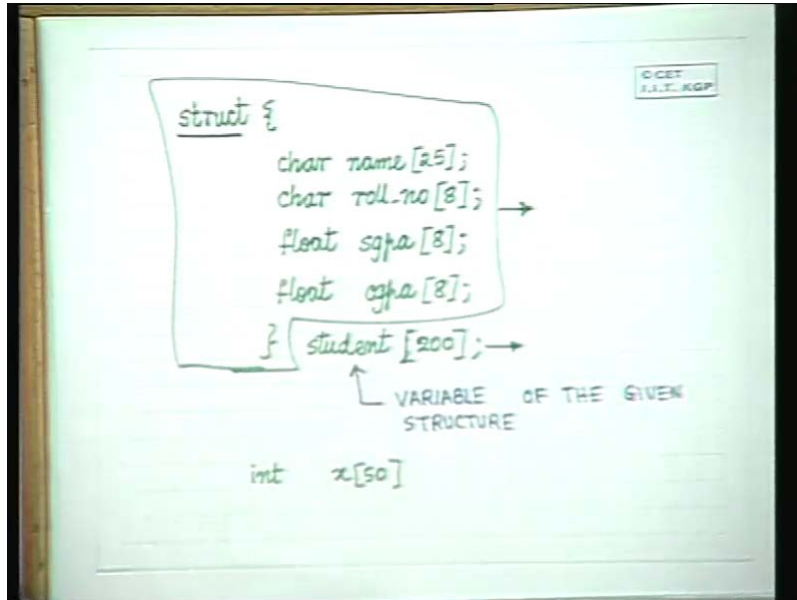 © CET
I.I.T. KGP
struct {
char name [25];
char roll_no [8];
float sgpa [8];
float cgpa [8];
} student [200];
VARIABLE OF THE GIVEN
STRUCTURE
int x[50]